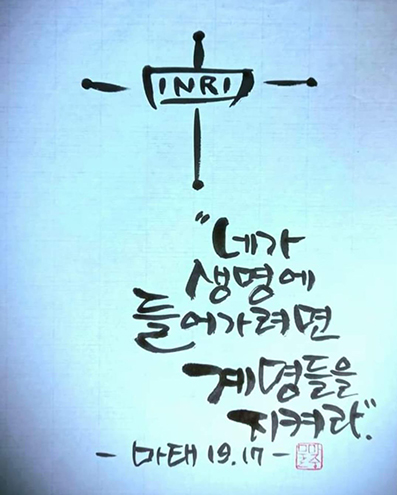 INRI
"네가
생명에
들어가려면
계명들을
지켜라."
- 마태 19.17 -